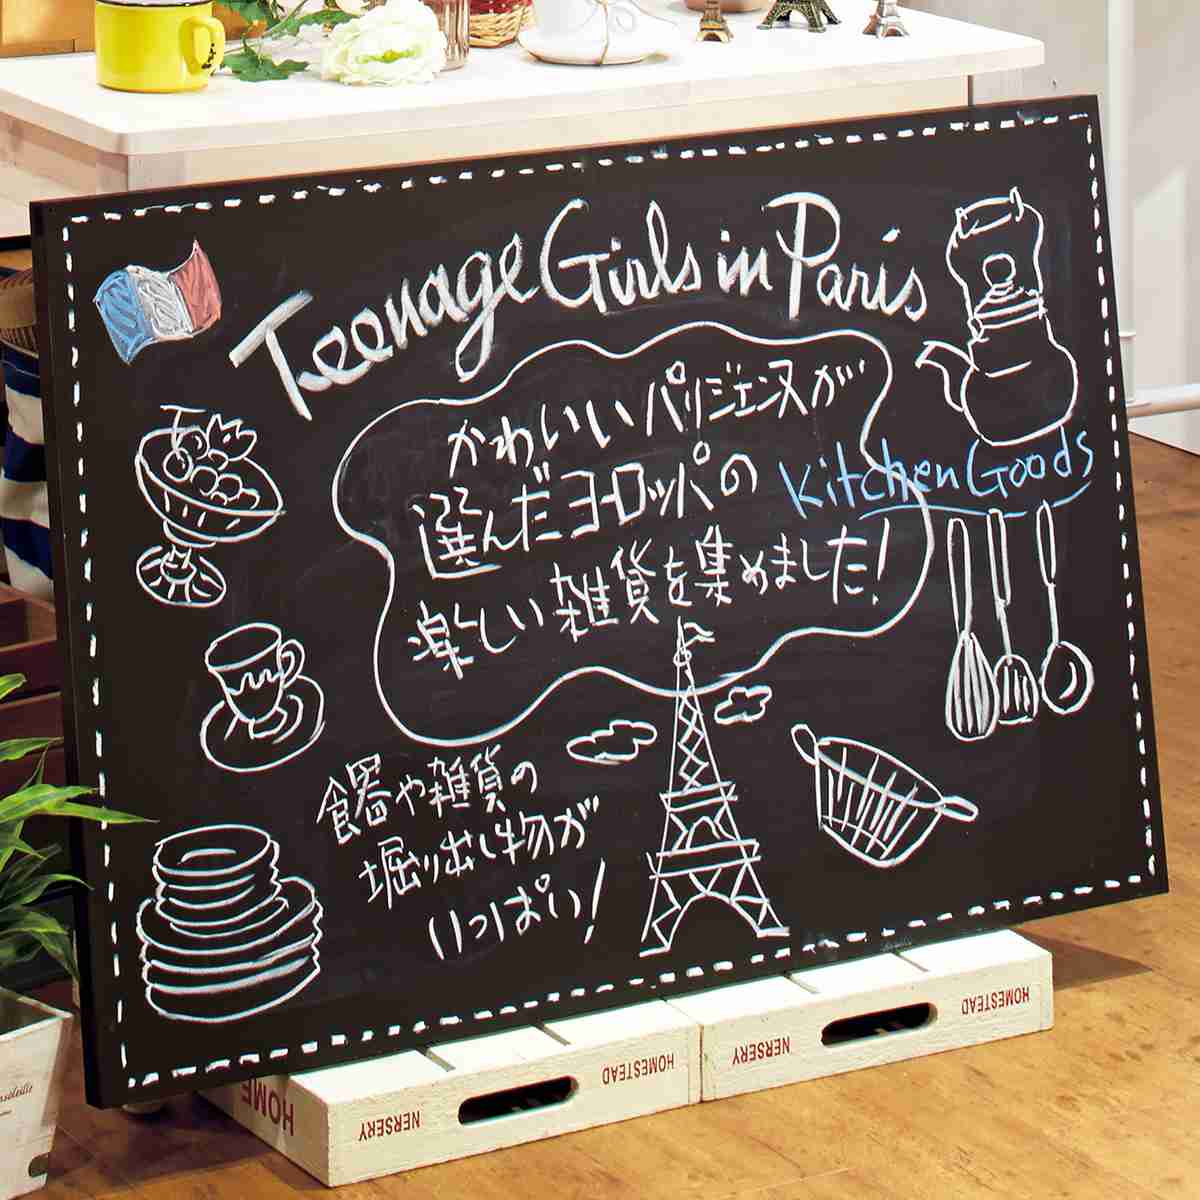 Teenage Girls in Paris
かわいいパリジェンヌが
選んだヨーロッパの
楽しい雑貨を集めました!
Kitchen Goods
食器や雑貨の
堀り出し物が
いっぱい!
HOMESTEAD
NERSERY
HOMESTEAD
NERSERY
HOME